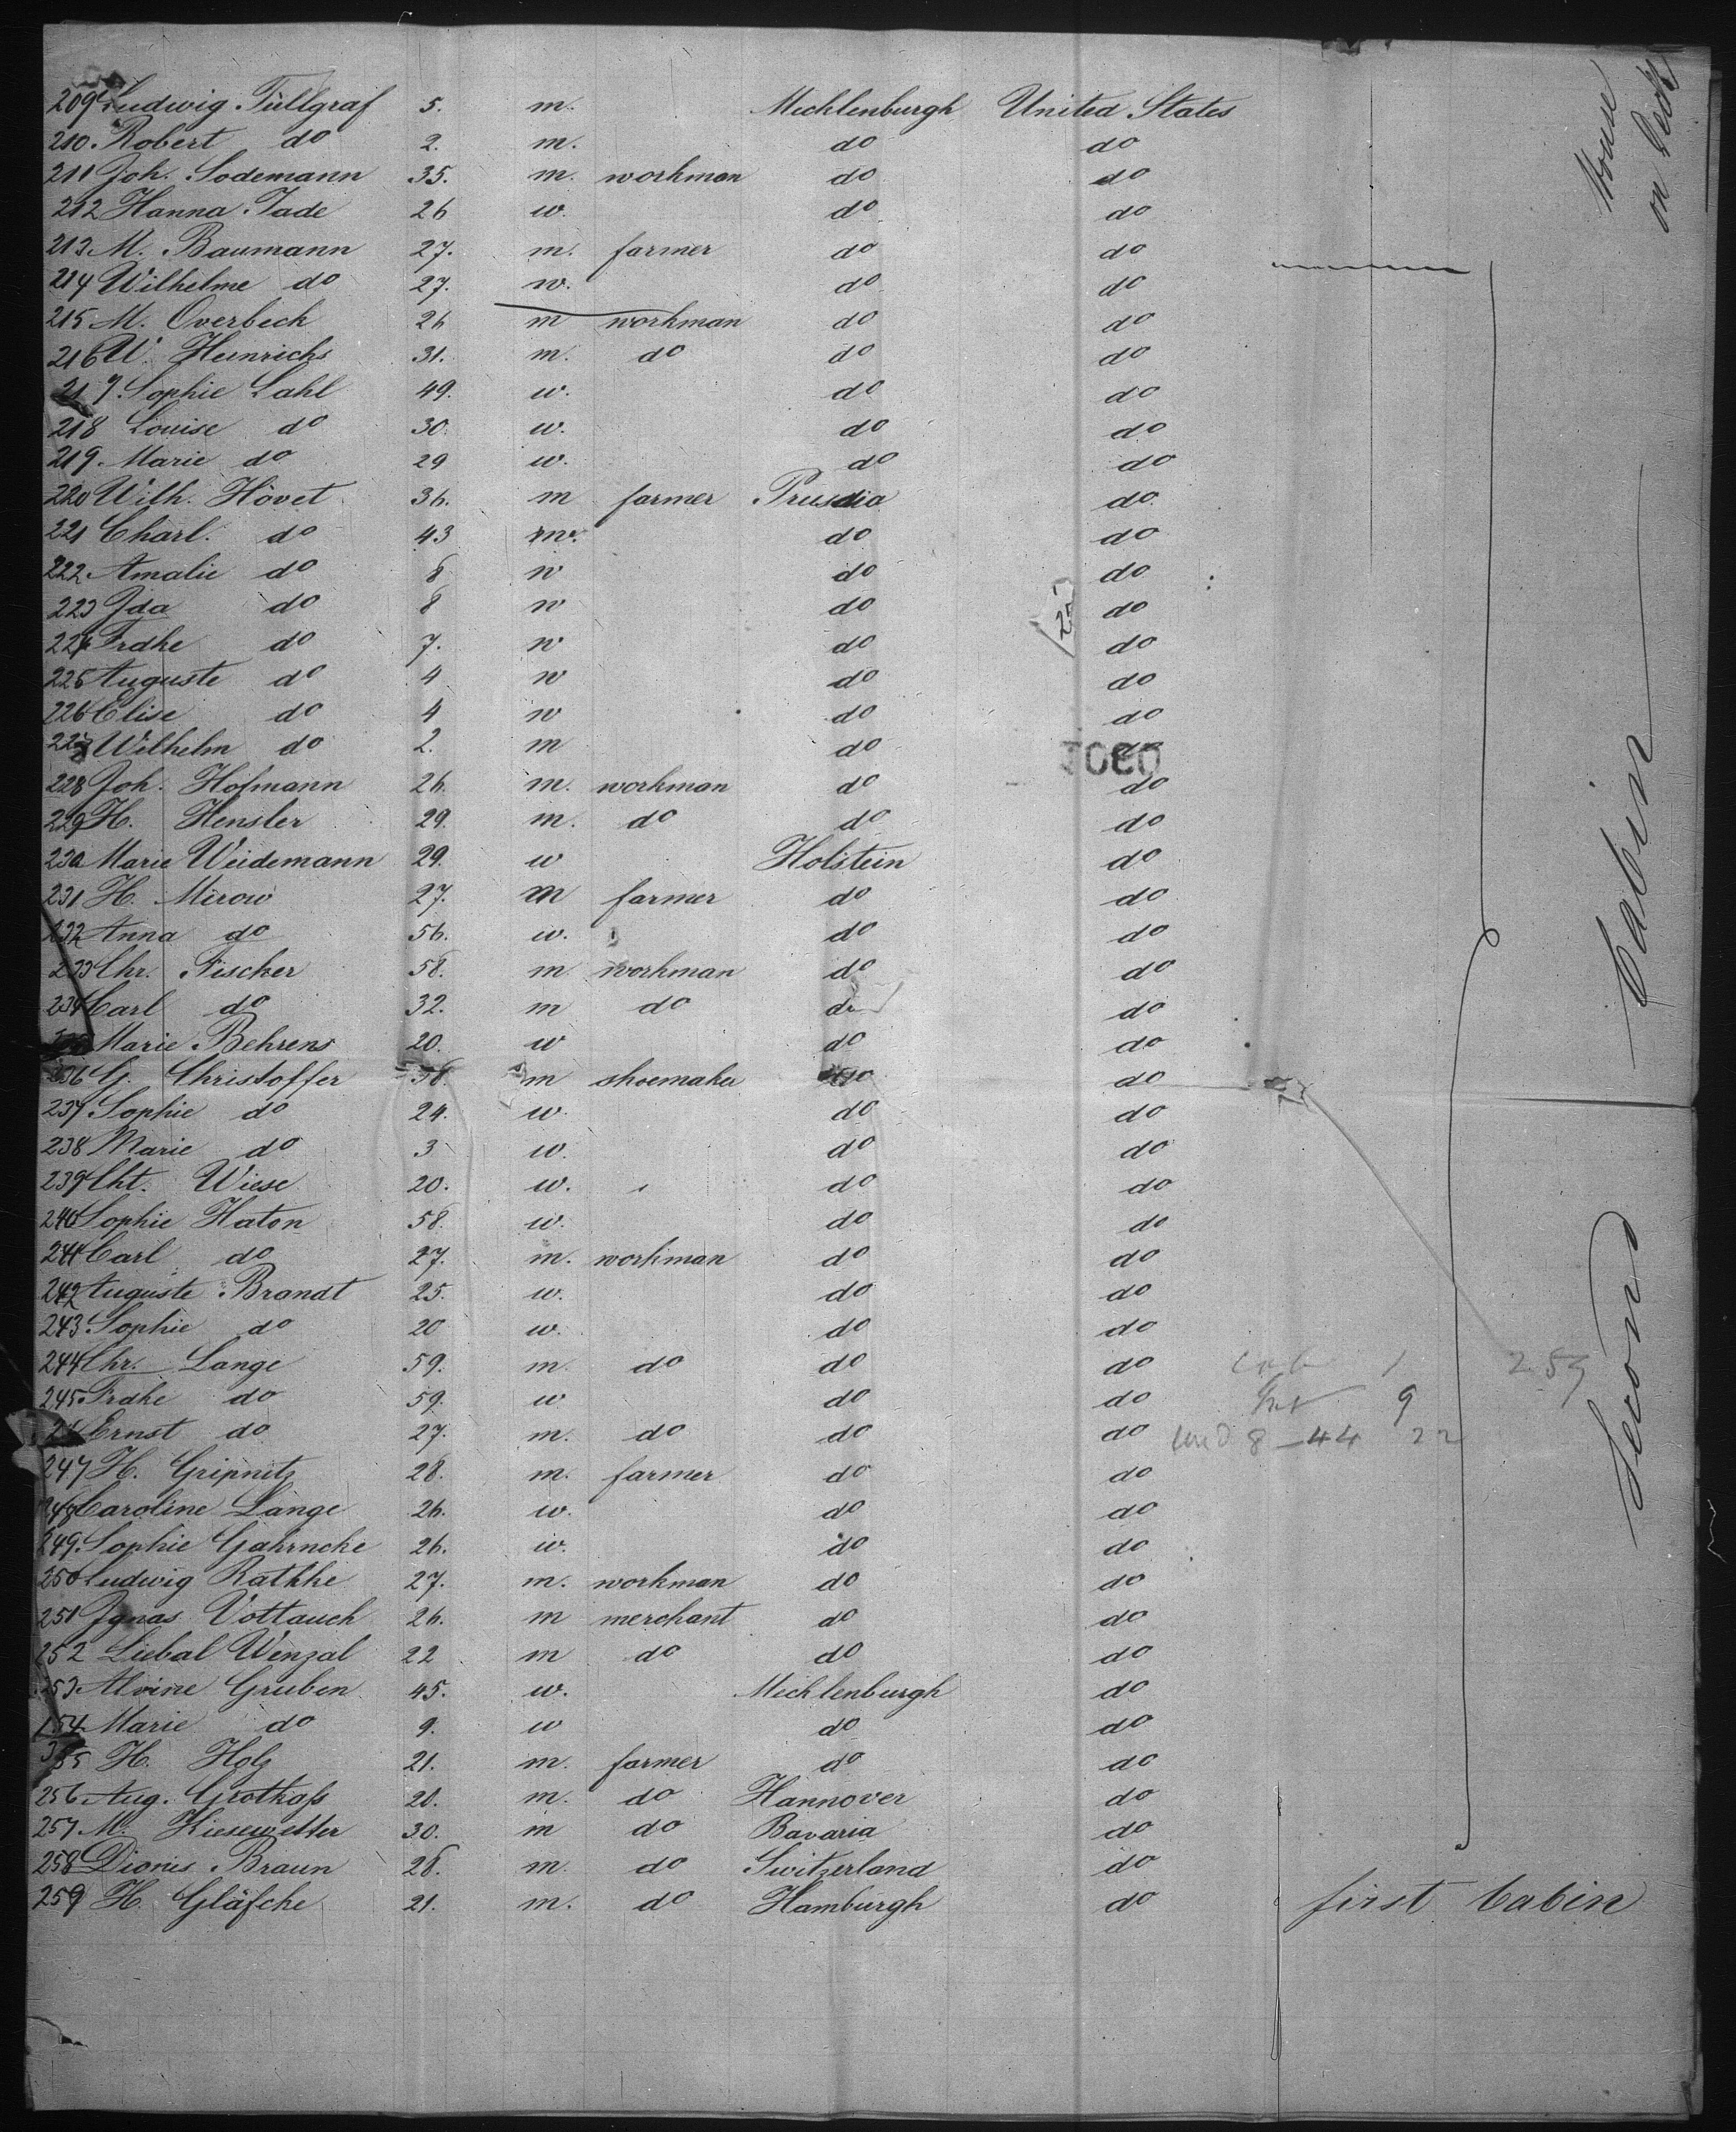 209 Ludwig Tüllgraf 5. m. Mecklenburgh United States
210. Robert do 2. m. do do
211 Joh. Sodemann 35. m. workman do do
212 Hanna Jade 26 w. do do
213 M. Baumann 27. m. farmer do do
214 Wilhelme do 27. w. do do
215 M. Overbeck 26 m workman do do
216 W. Heinrichs 31. m. do do do
217. Sophie Lahl 49. w. do do
218 Louise do 30. w. do do
219. Marie do 29 w. do do
220 Wilh. Hövet 36. m farmer Prussia do
221 Charl. do 43 do do
222. Amalie do 8 w do do
223 Ida do 8 w do do
224 Frdke do 7. w do do
225 Auguste do 4 w do do
226 Elise do 4 w do do
227 Wilhelm do 2. m do do
228 Joh. Hofmann 26. m. workman do do
229 H. Hensler 29. m. do do do
230 Marie Weidemann 29. w Holstein do
231 H. Mirow 27. m farmer do do
232 Anna do 56. w. do do
233 Chr. Fischer 58. m workman do do
234 Carl do 32. m do do do
Marie Behrens 20. w do do
236 G. Christoffer 36. m shoemaker do do
237. Sophie do 24. w. do do
238 Marie do 3 w. do do
239 Cht. Wiese 20. w. do do
240 Sophie Haton 58. w. do do
241 Carl do 27. m. workman do do
242 Auguste Brandt 25. w. do do
243 Sophie do 20 w. do do
244 Chr. Lange 59. m. do do do 1 259
245 Frdke do 59. w do do 9
Ernst do 27. m. do do do 8 - 44 22
247 H. Gripnitz 28. m. farmer do do
248 Caroline Lange 26. w. do do
249. Sophie Gahrncke 26. w. do do
250 Ludwig Rathke 27. m. workman do do
251 Ignas Vottauch 26. m merchant do do
252 Liebal Wenzal 22 m do do do
253. Alvine Gruben 45. w. Mecklenburgh do
254 Marie do 9. w do do
255 H. Holz 21. m. farmer do do
256 Aug. Grothass 20. m. do Hannover do
257 M. Kiesewetter 30. m do Bavaria do
258 Dionis Braun 28. m. do Switzerland do
259 H. Gläfcke 21. m. do Hamburgh do first Cabin
House
on Deck
Second Cabin